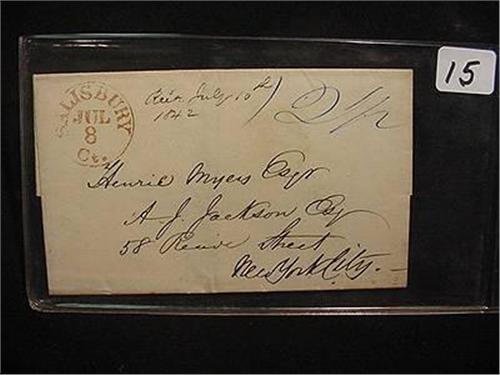 15
SALISBURY
JUL
8
Ct.
July 10th
1842
Henrie Myers Esqr
A. J. Jackson Esq
58 Street
New York City.